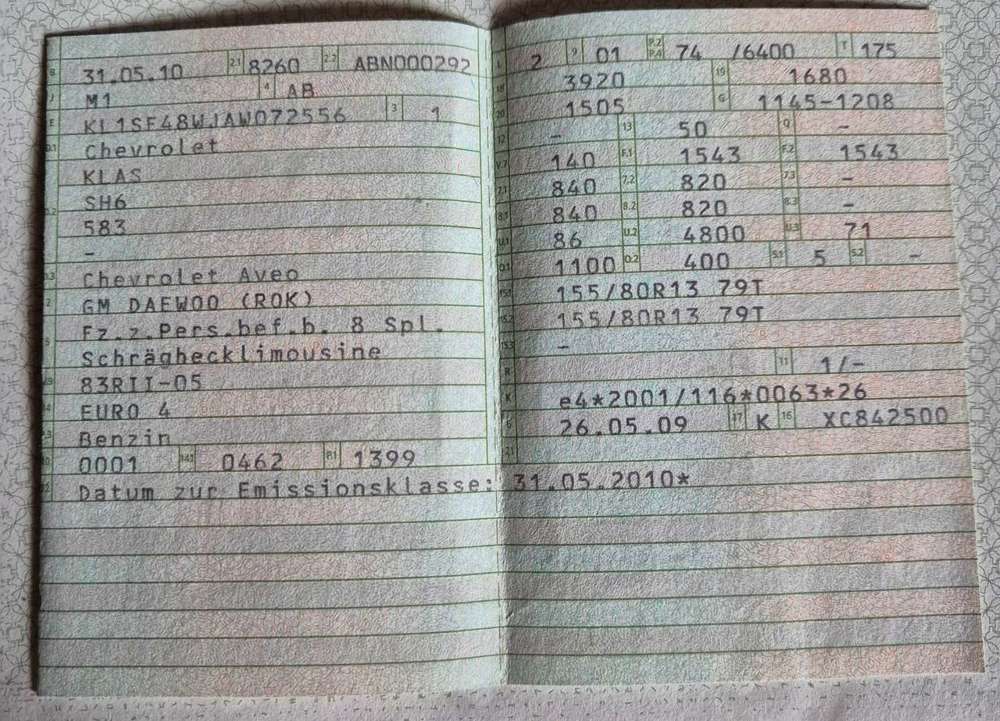 B 31.05.10 2.1 8260 2.2 ABN000292
J M1 4 AB
E KL1SF48WJAW072556 3 1
D.1 Chevrolet
KLAS
D.2 SH6
583
-
D.3 Chevrolet Aveo
2 GM DAEWOO (ROK)
Fz.z.Pers.bef.b. 8 Spl.
5 Schräghecklimousine
V.9 83RII-05
14 EURO 4
P.3 Benzin
10 0001 14.1 0462 P.1 1399
22 Datum zur Emissionsklasse: 31.05.2010*
L 2 9 01 P.2 P.4 74 /6400 T 175
18 3920 19 1680
20 1505 G 1145-1208
12 - 13 50 Q -
V.7 140 F.1 1543 F.2 1543
7.1 840 7.2 820 7.3 -
8.1 840 8.2 820 8.3 -
U.1 86 U.2 4800 U.3 71
O.1 1100 O.2 400 S.1 5 S.2 -
15.1 155/80R13 79T
15.2 155/80R13 79T
15.3 -
R 11 1/-
K e4*2001/116*0063*26
6 26.05.09 17 K 16 XC842500
21